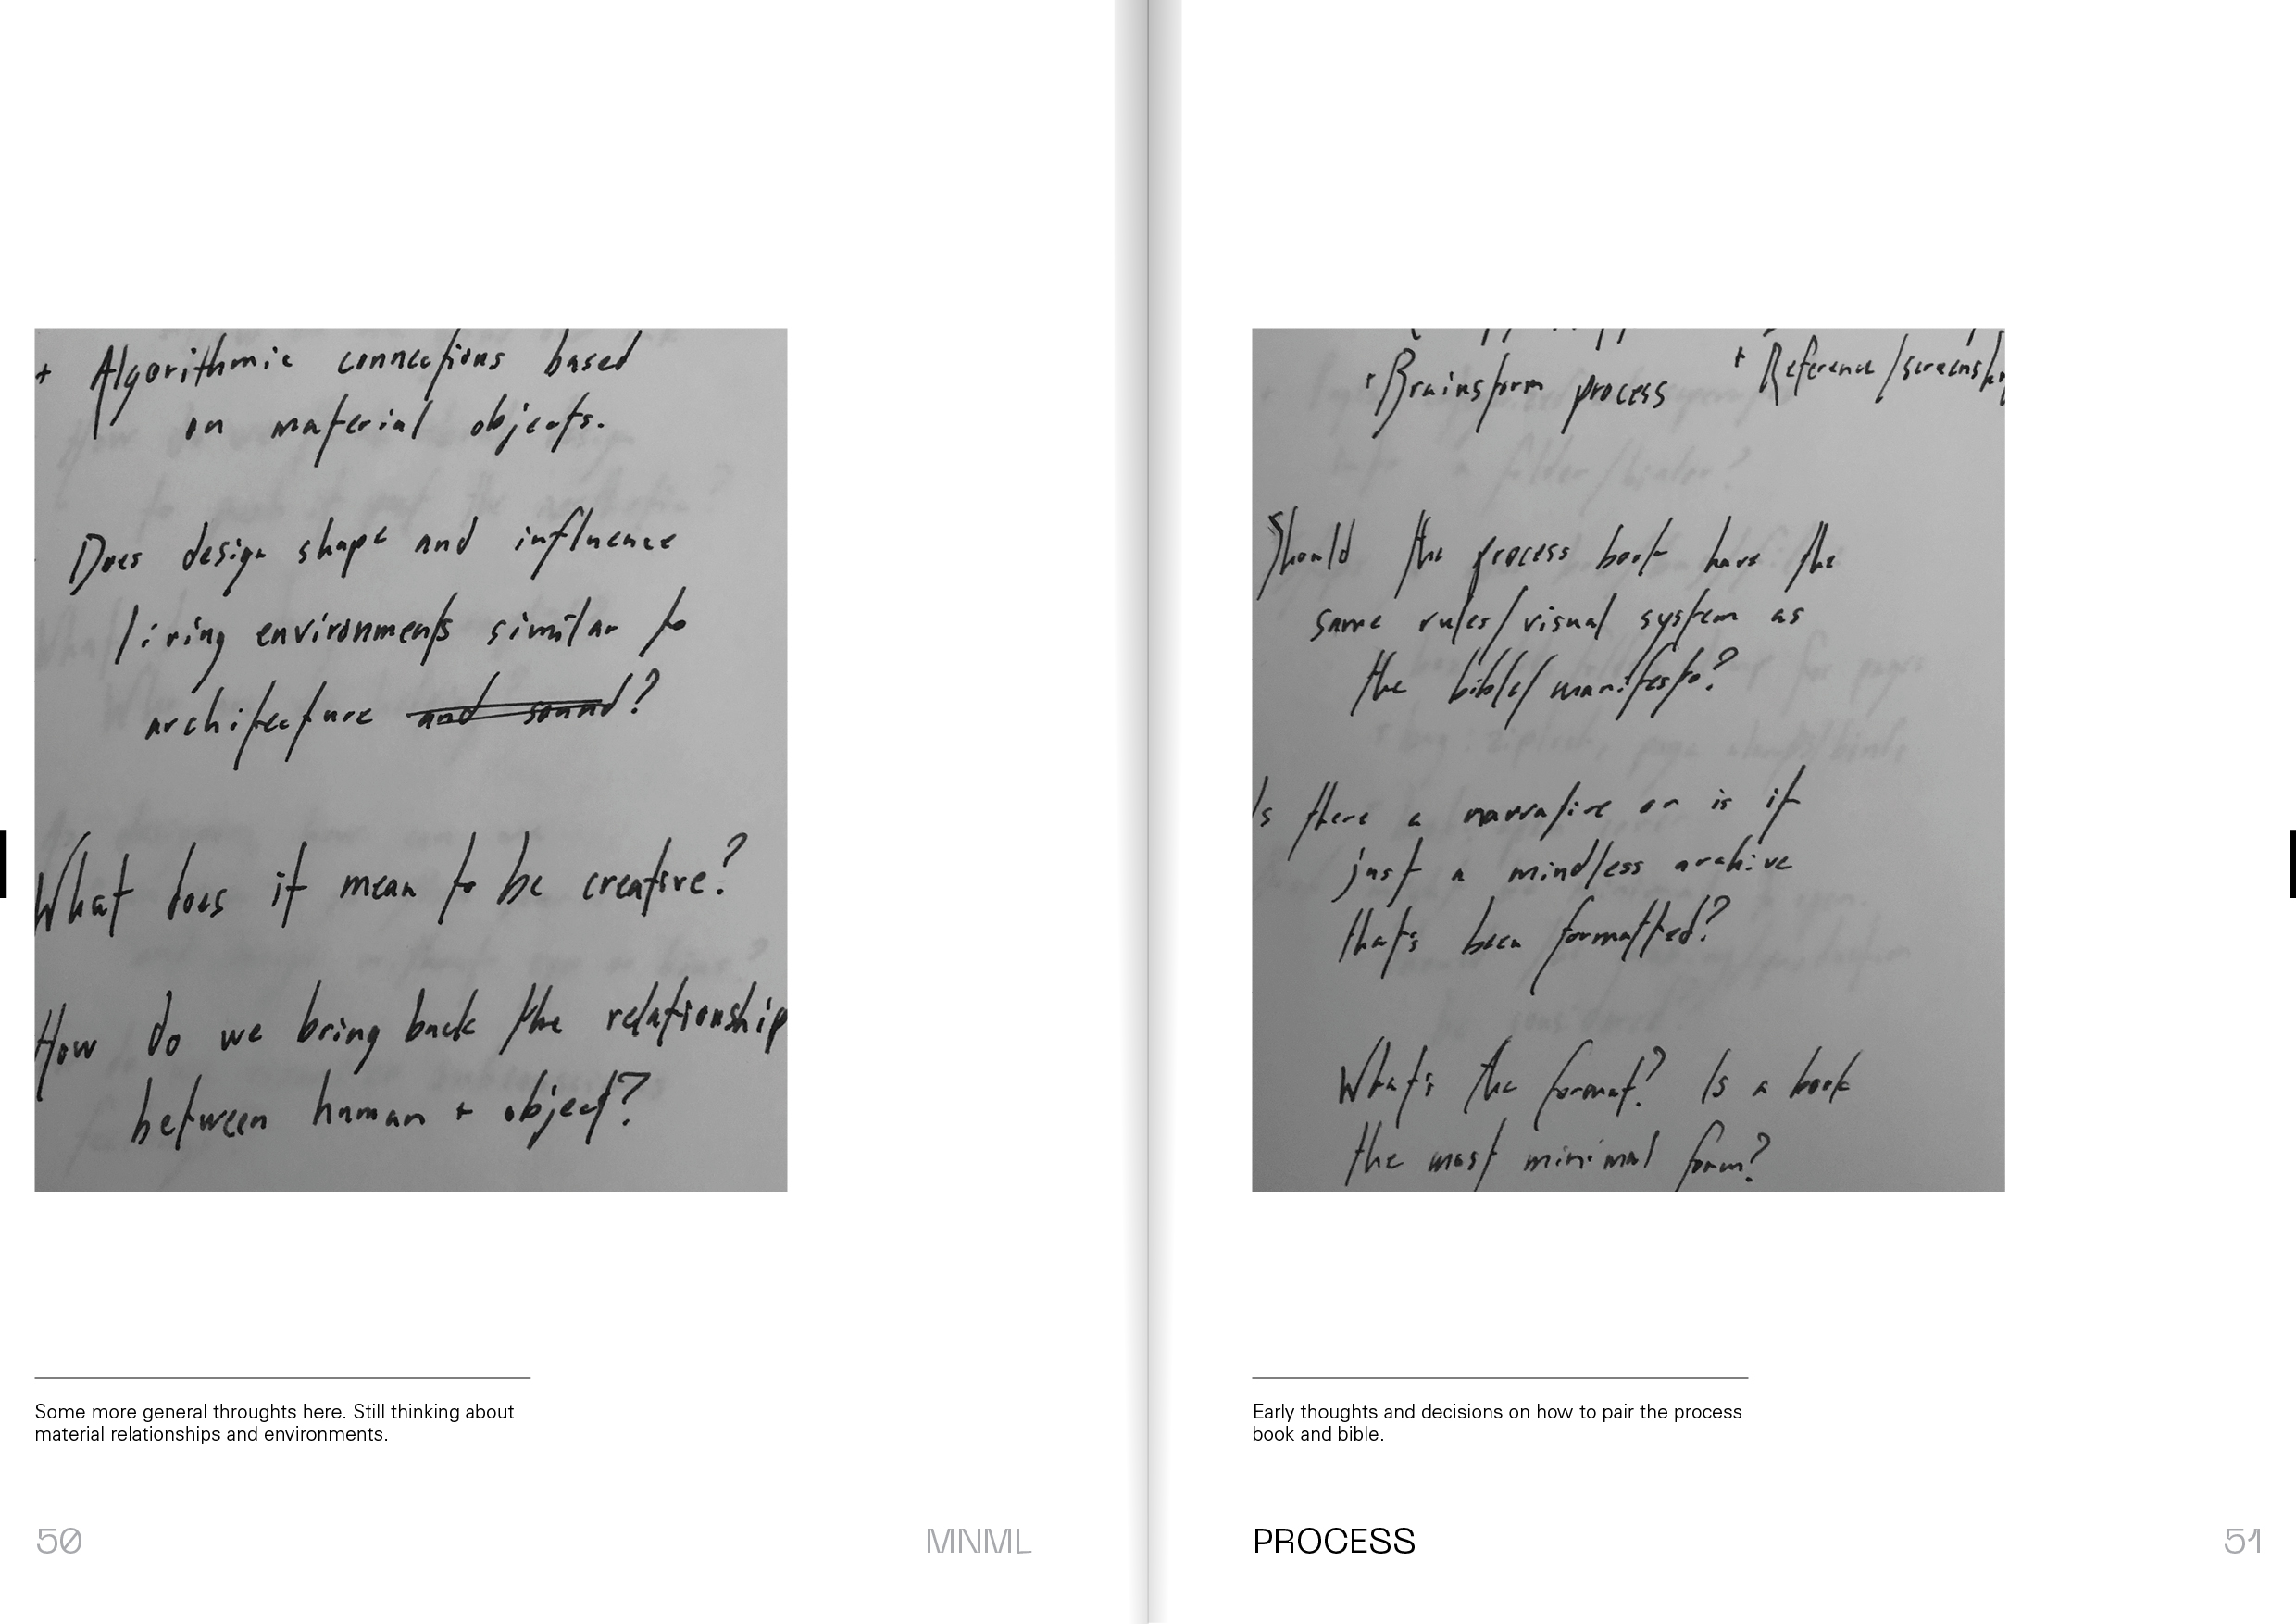 + Algorithmic connections based
on material objects.
Does design shape and influence
living environments similar to
architecture and sound?
What does it mean to be creative?
How do we bring back the relationship
between human + object?
Some more general throughts here. Still thinking about
material relationships and environments.
50
MNML
+ Brainstorm process
+ Reference/screensh
Should the process book have the
same rules/visual system as
the bible/manifesto?
Is there a narrative or is it
just a mindless archive
that's been formatted?
What's the format? Is a book
the most minimal form?
Early thoughts and decisions on how to pair the process
book and bible.
PROCESS
51